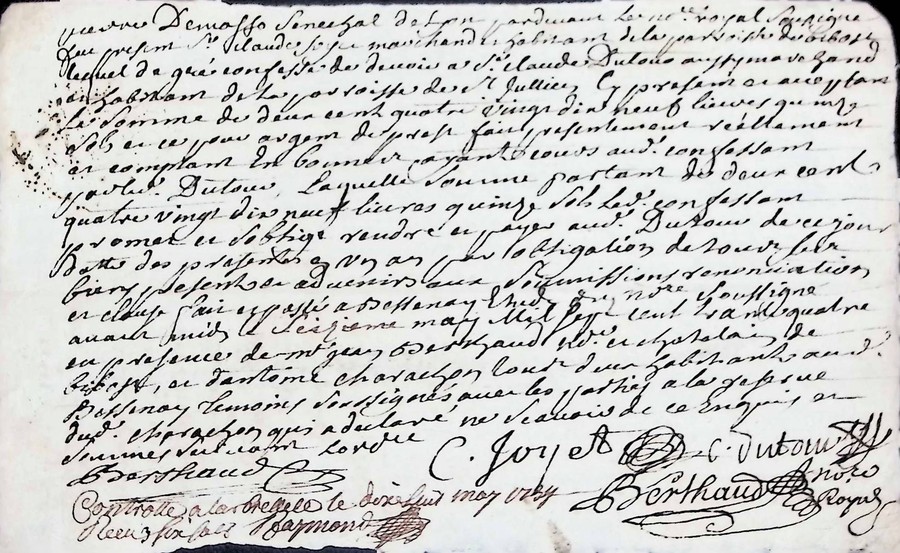 pierre Demasso Senechal de Lyon pardevant le no.re royal Soussigne
fut present S.r Claude Joyet marchand habitant de la paroisse de bibost
lequel de gré confesse de devoir a S.r Claude Dutour aussy marchand
habitant de la paroisse de S.t Jullien Cy present et acceptant
la somme de deux cent quatre vingt dix neuf livres quinze
sols et ce pour argent de prest fait presentement réellement
et comptant En bonnes ayant cours aud. confessant
par led. Dutour, Laquelle Somme partant de deux cent
quatre vingt dix neuf livres quinze Sols led. confessant
promet et soblige rendre et payer aud. Dutour de ce jour
datte des presentes en un an par obligation de tous ses
biens presents et advenirs aux Soumissions renonciation
et clause fait et passé a Bessenay Etude du no.re Soussigné
avant midy le Seizieme may Mil Sept cent trante quatre
en presence de m.e jean Berthaud no.re et chatelain de
bibost, et dantoine charachon tous deux habitants aud.
Bessenay temoins Soussignés avec les parties a la reserve
dud. charachon qui a declaré ne Scavoir de ce Enquis et
Sommé suivant Lordce
C. Joyet C. Dutour
Berthaud
Berthaud no.re Royal
Controllé a larbresle le dixe huit may 1734
Receu six sols Raymond